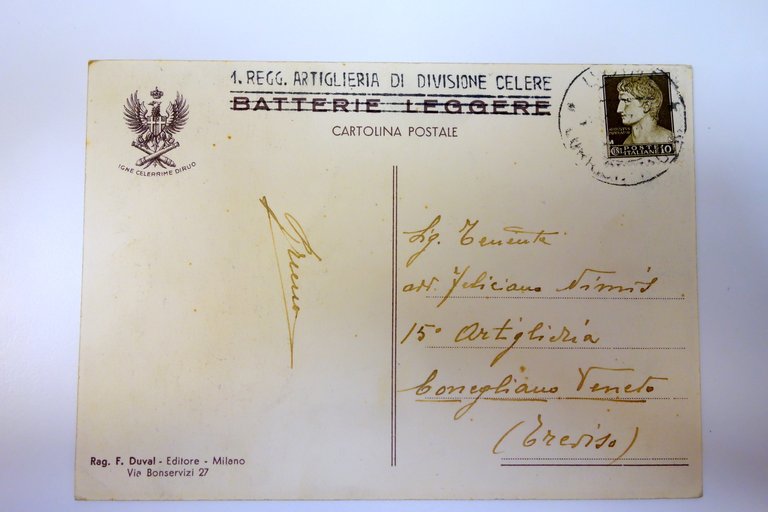 1. REGG. ARTIGLIERIA DI DIVISIONE CELERE
BATTERIE LEGGERE
CARTOLINA POSTALE
IGNE CELERRIME DIRUO
POSTE
ITALIANE 10
Bruno
Sig. Tenente
avv. Feliciano Nimis
15° Artiglieria
Conegliano Veneto
(Treviso)
Rag. F. Duval - Editore - Milano
Via Bonservizi 27